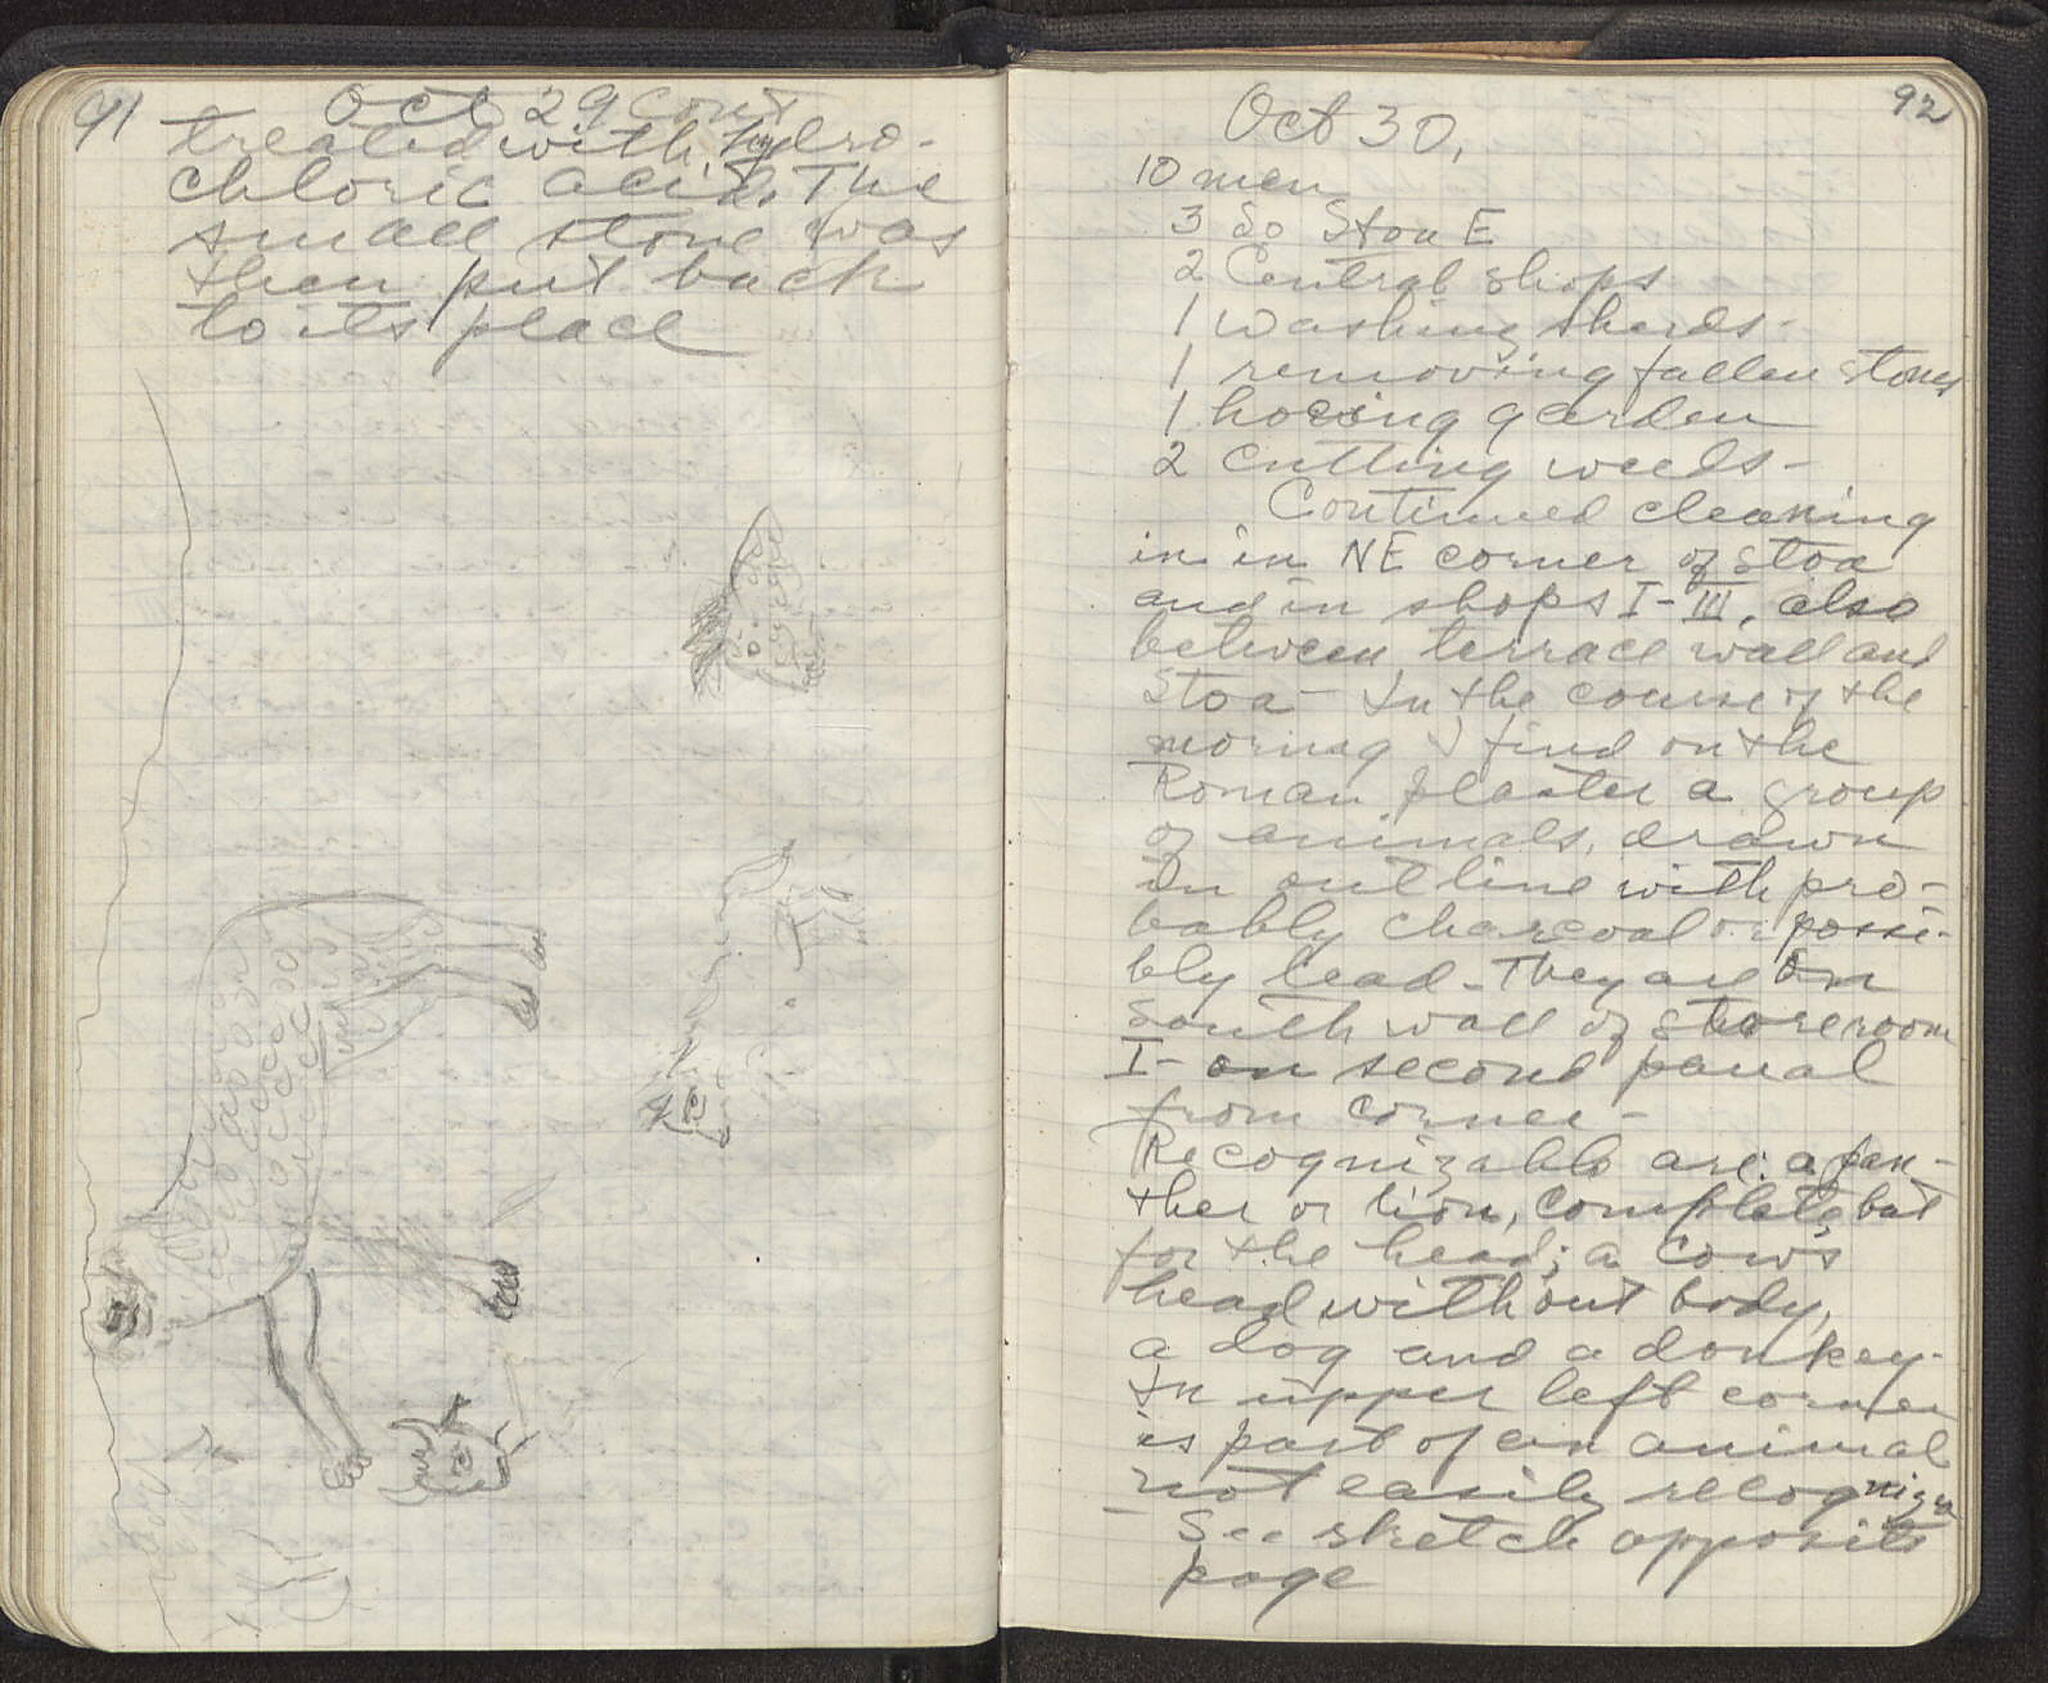 91
Oct 29 Cont
treated with hydro-
chloric acid. The
small stone was
then put back
to its place
92
Oct 30,
10 men
3 So Stoa E
2 Central shops
1 washing sherds-
1 removing fallen stones
1 hoeing garden
2 cutting weeds-
Continued cleaning
in in NE corner of Stoa
and in shops I-III, also
between terrace wall and
Stoa- In the course of the
morning I find on the
Roman plaster a group
of animals, drawn
in outline with pro-
bably charcoal or possi-
bly lead- They are on
South wall of storeroom
I- on second panal
from corner-
Recognizable are: a pan-
ther or lion, complete but
for the head; a cow's
head without body,
a dog and a donkey-
In upper left corner
is part of an animal
not easily recogniza
- See sketch opposite
page